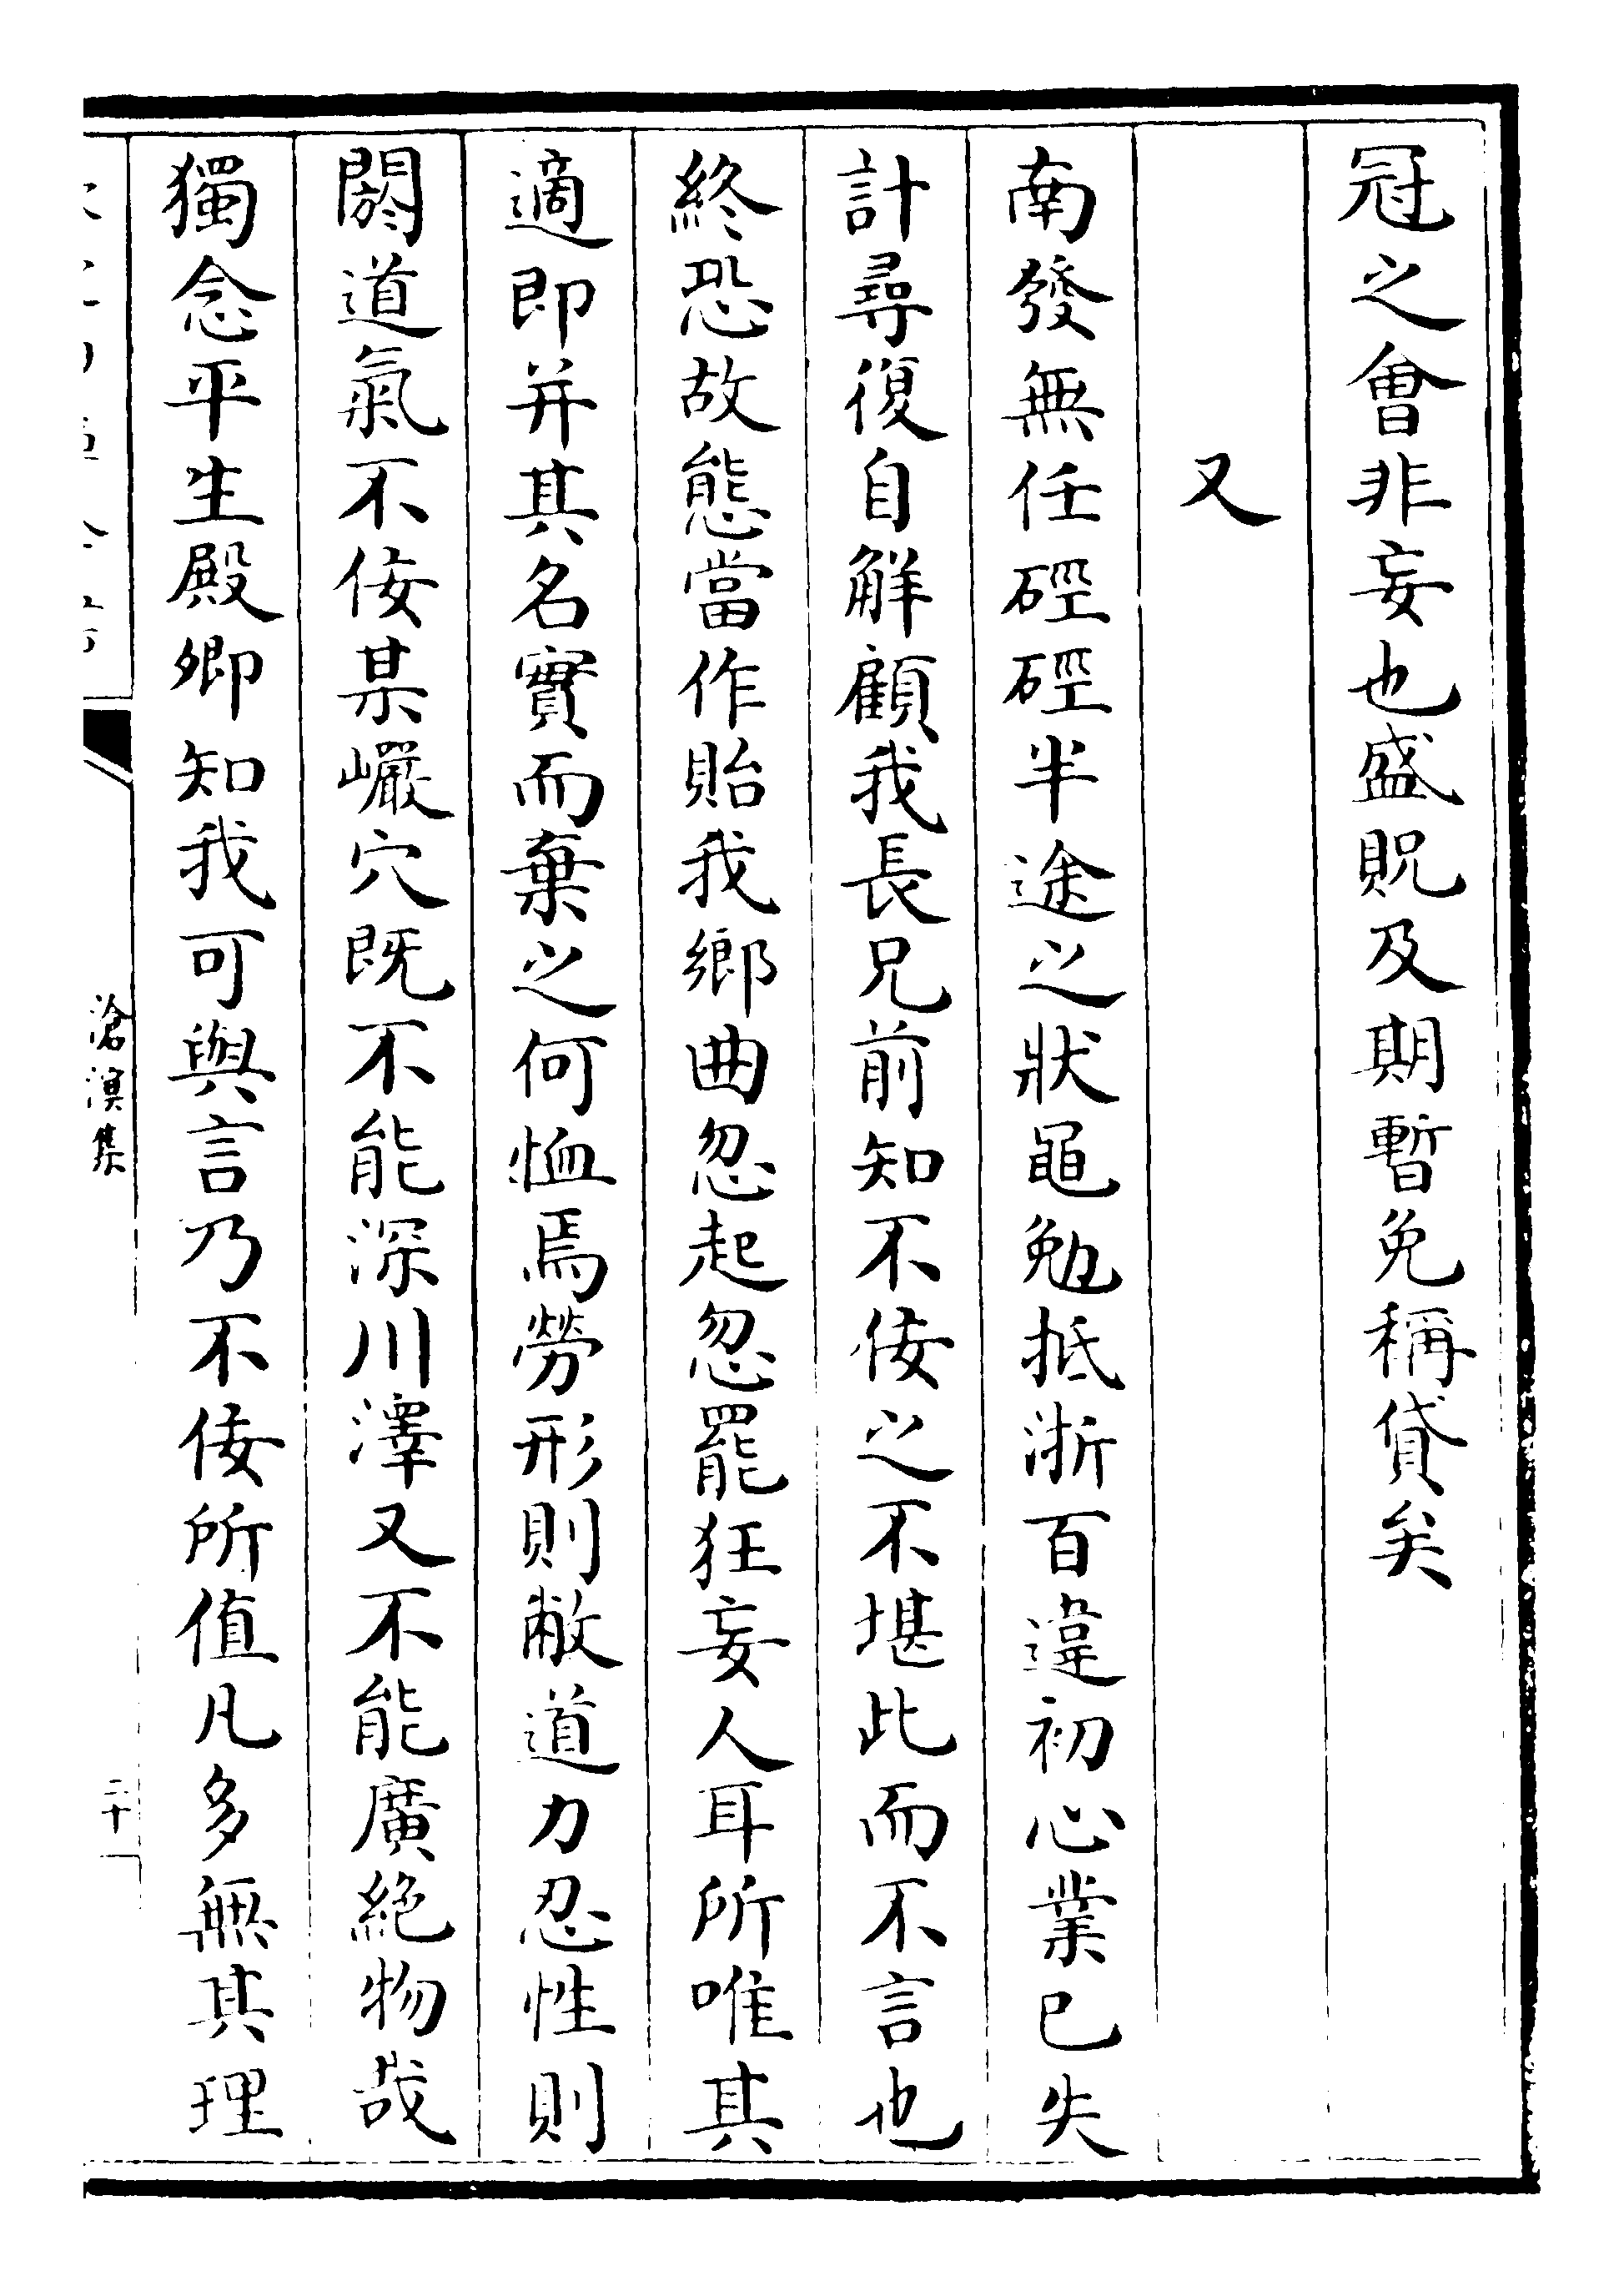 冠之會非妄也盛貺及期暫免稱貸矣
又
南發無任硜硜半途之狀黽勉抵浙百違初心業已失
計尋復自解顧我長兄前知不佞之不堪此而不言也
終恐故態當作貽我鄉曲忽起忽罷狂妄人耳所唯其
適即并其名實而棄之何恤焉勞形則敝道力忍性則
閼道氣不佞某巗穴既不能深川澤又不能廣絶物哉
獨念平生殿卿知我可與言乃不佞所值凡多無其理
滄溟集
二十一